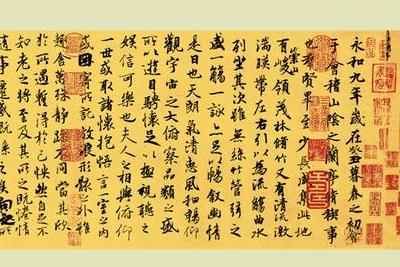 永和九年歲在癸丑暮春之初會
于會稽山陰之蘭亭脩禊事
也群賢畢至少長咸集此地
有崇山峻領茂林脩竹又有清流激
湍暎帶左右引以為流觴曲水
列坐其次雖無絲竹管弦之
盛一觴一詠亦足以暢敘幽情
是日也天朗氣清惠風和暢仰
觀宇宙之大俯察品類之盛
所以遊目騁懷足以極視聽之
娛信可樂也夫人之相與俯仰
一世或取諸懷抱悟言一室之內
或因寄所託放浪形骸之外雖
趣舍萬殊靜躁不同當其欣
於所遇蹔得於己怏然自足不
知老之將至及其所之既惓情
隨事遷感慨係之矣向之